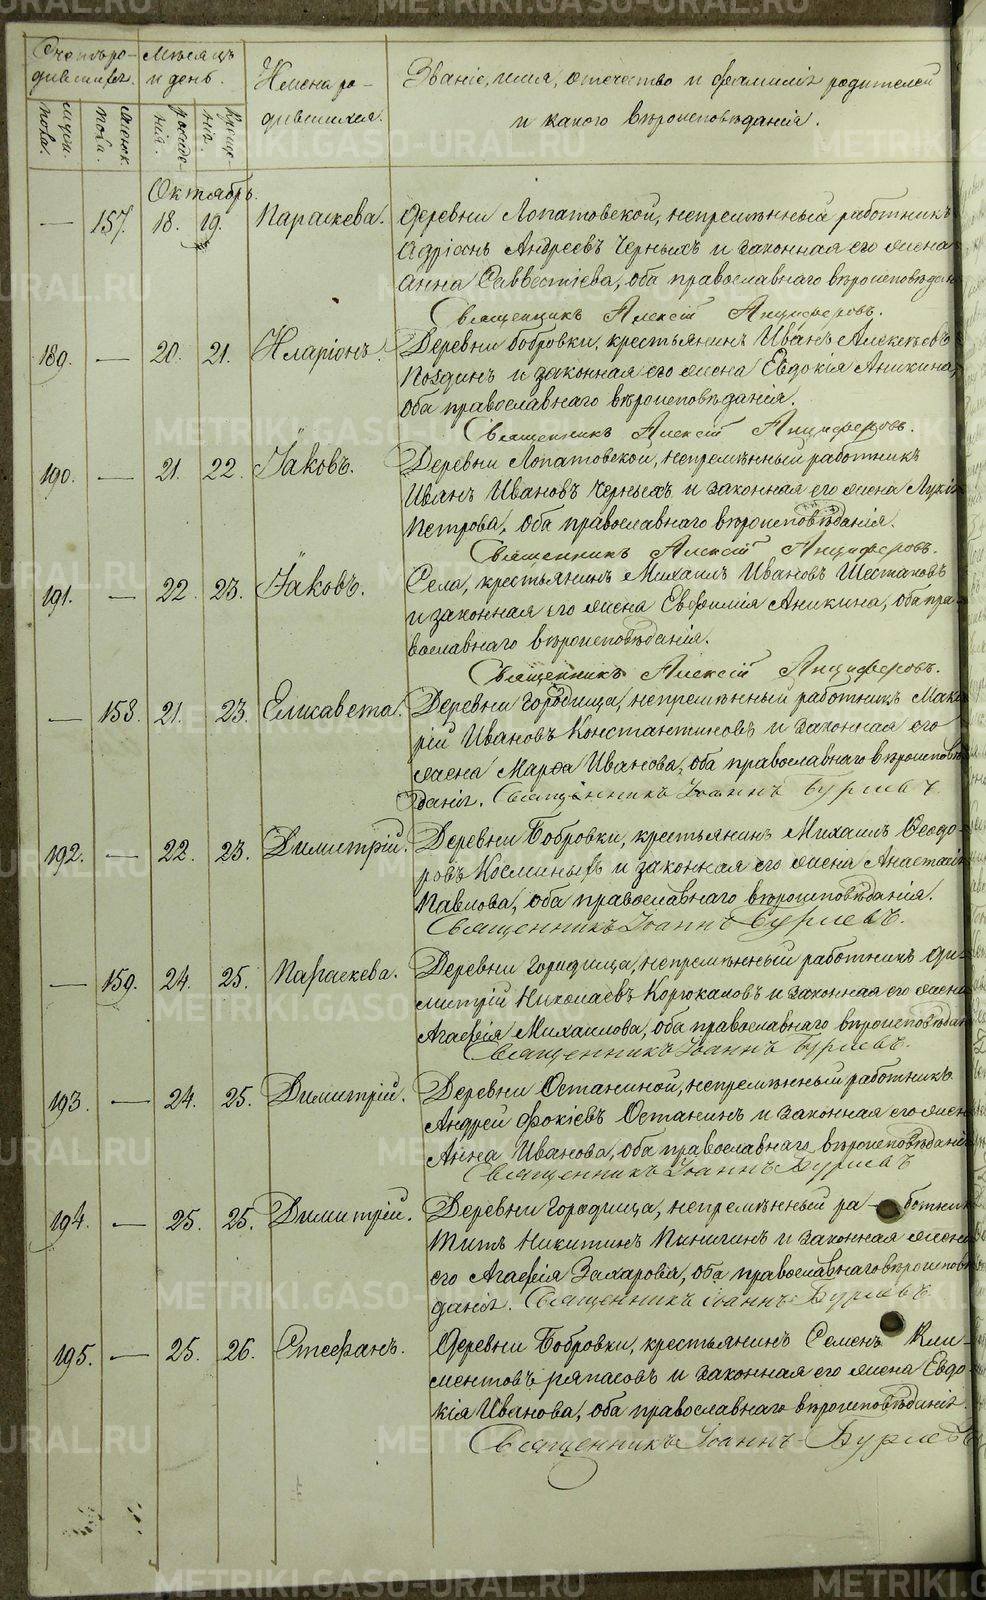 Счетъ ро-
дившихся.
Мѣсяцъ
и день.
Имена ро-
дившихся.
Званіе, имя, отечество и фамилія родителей
и какого вѣроисповѣданія.
мужск. пола.
женск. пола.
рожде-
нія.
креще-
нія.
Октябрь.
— 157. 18. 19. Параскева. Деревни Лопатовской, непремѣнный работникъ
Адріанъ Андреевъ Черныхъ и законная его жена
Анна Савватіева, оба православнаго вѣроисповѣдан
Священникъ Алексій Анциферовъ.
189. — 20. 21. Иларіонъ. Деревни Бобровки, крестьянинъ Иванъ Алексѣевъ
Поздинъ и законная его жена Евдокія Аникина,
оба православнаго вѣроисповѣданія.
Священникъ Алексій Анциферовъ.
190. — 21. 22. Іаковъ. Деревни Лопатовской, непремѣнный работникъ
Иванъ Ивановъ Черныхъ и законная его жена Лукія
Петрова, оба православнаго вѣроисповѣданія.
Священникъ Алексій Анциферовъ.
191. — 22. 23. Іаковъ. Села, крестьянинъ Михаилъ Ивановъ Шестаковъ
и законная его жена Евфимія Аникина, оба пра-
вославнаго вѣроисповѣданія.
Священникъ Алексій Анциферовъ.
— 158. 21. 23. Елисавета. Деревни Городища, непремѣнный работникъ Мака-
рій Ивановъ Константиновъ и законная его
жена Марфа Иванова, оба православнаго вѣроисповѣ
данія. Священникъ Іоаннъ Бурлевъ
192. — 22. 23. Димитрій. Деревни Бобровки, крестьянинъ Михаилъ Ѳеодо-
ровъ Косминыхъ и законная его жена Анастасія
Павлова, оба православнаго вѣроисповѣданія.
Священникъ Іоаннъ Бурлевъ.
— 159. 24. 25. Параскева. Деревни Городища, непремѣнный работникъ Ди-
митрій Николаевъ Корюкаловъ и законная его жена
Агафія Михаилова, оба православнаго вѣроисповѣдан
Священникъ Іоаннъ Бурлевъ.
193. — 24. 25. Димитрій. Деревни Останиной, непремѣнный работникъ
Андрей Фокіевъ Останинъ и законная его жен
Анна Иванова, оба православнаго вѣроисповѣдані
Священникъ Іоаннъ Бурлевъ
194. — 25. 25. Димитрій. Деревни Городища, непремѣнный ра-ботник
Титъ Никитинъ Пинигинъ и законная жена
его Агафія Захарова, оба православнаго вѣроисповѣ
данія. Священникъ Іоаннъ Бурлевъ
195. — 25. 26. Стефанъ. Деревни Бобровки, крестьянинъ Семенъ Кли-
ментовъ Ряпасовъ и законная его жена Евдо-
кія Иванова, оба православнаго вѣроисповѣданія.
Священникъ Іоаннъ Бурлевъ